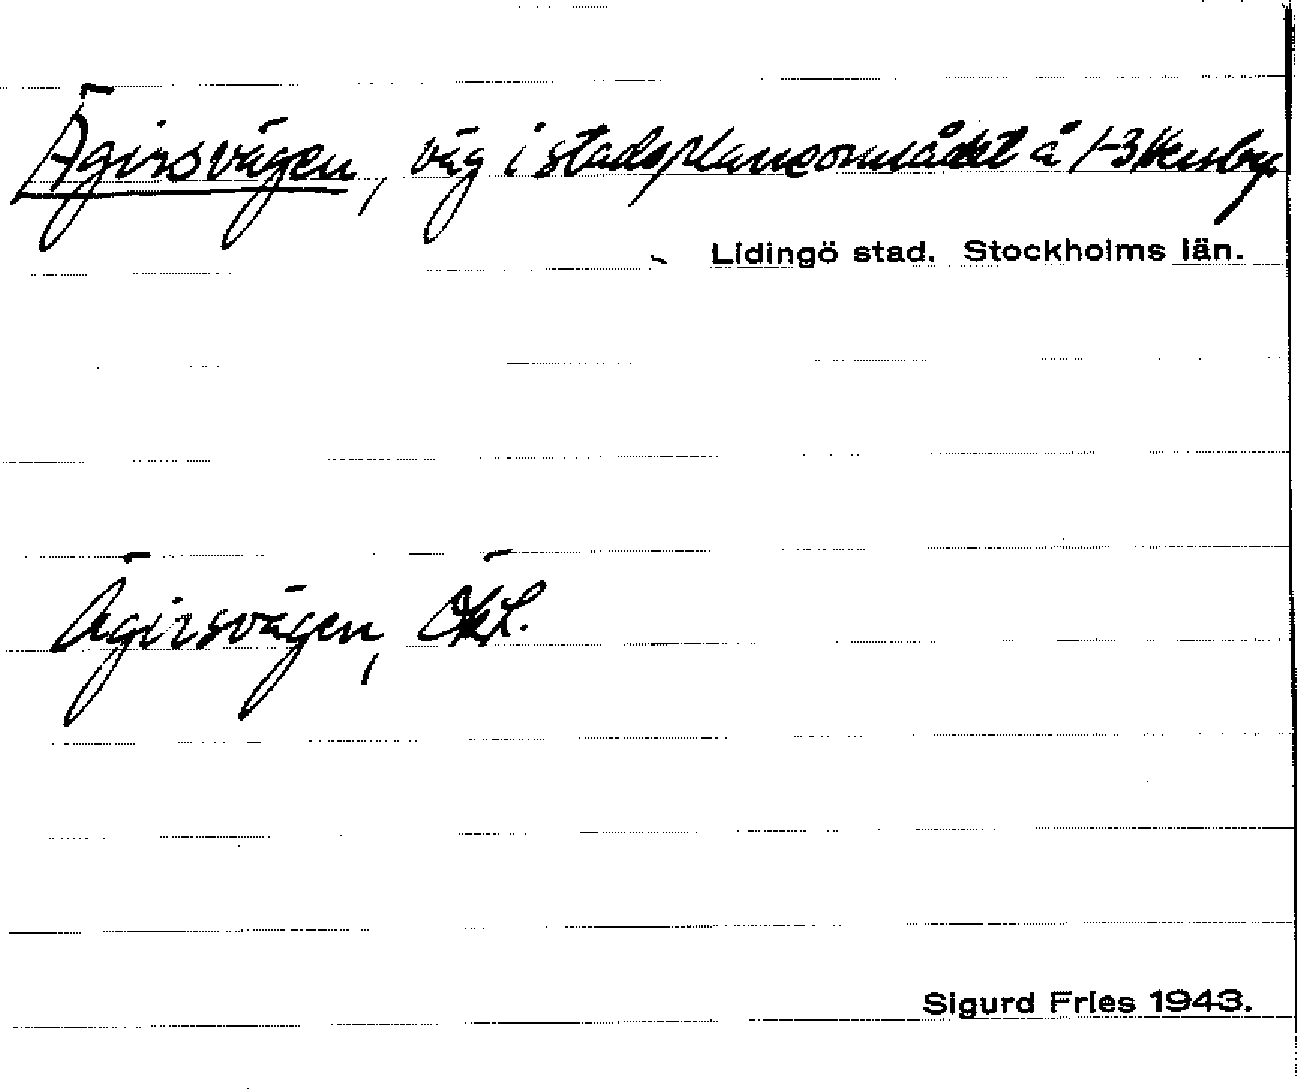 Ägirsvägen, väg i stadsplaneområdet å 1-3 Hersby.
Lidingö stad. Stockholms län.
Ägirsvägen, ÖKL.
Sigurd Fries 1943.